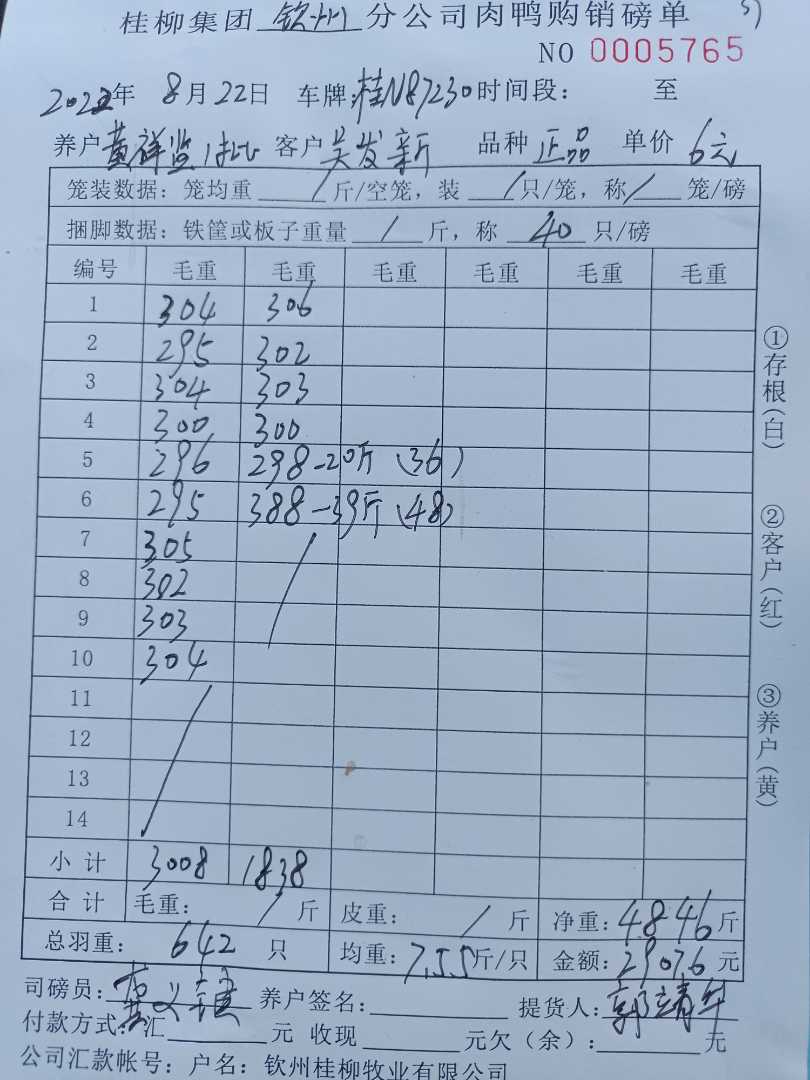 5)
桂柳集团 钦州 分公司肉鸭购销磅单
NO 0005765
2022年 8月22日 车牌:桂N87230 时间段: 至
养户 黄祥监 1批 客户 吴发新 品种 正品 单价 6元
笼装数据:笼均重 / 斤/空笼,装 / 只/笼,称 / 笼/磅
捆脚数据:铁筐或板子重量 / 斤,称 40 只/磅
编号 毛重 毛重 毛重 毛重 毛重 毛重
1 304 306
2 295 302
3 304 303
4 300 300
5 296 298-20斤(36)
6 295 388-39斤(48)
7 305
8 302
9 303
10 304
11
12
13
14
小计 3008 1838
合计 毛重: / 斤 皮重: / 斤 净重:4846斤
总羽重: 642 只 均重:7.55斤/只 金额:29076元
司磅员: 养户签名: 提货人:郭靖华
付款方式:汇 元 收现 元欠(余): 元
公司汇款帐号:户名:钦州桂柳牧业有限公司
①存根(白)
②客户(红)
③养户(黄)